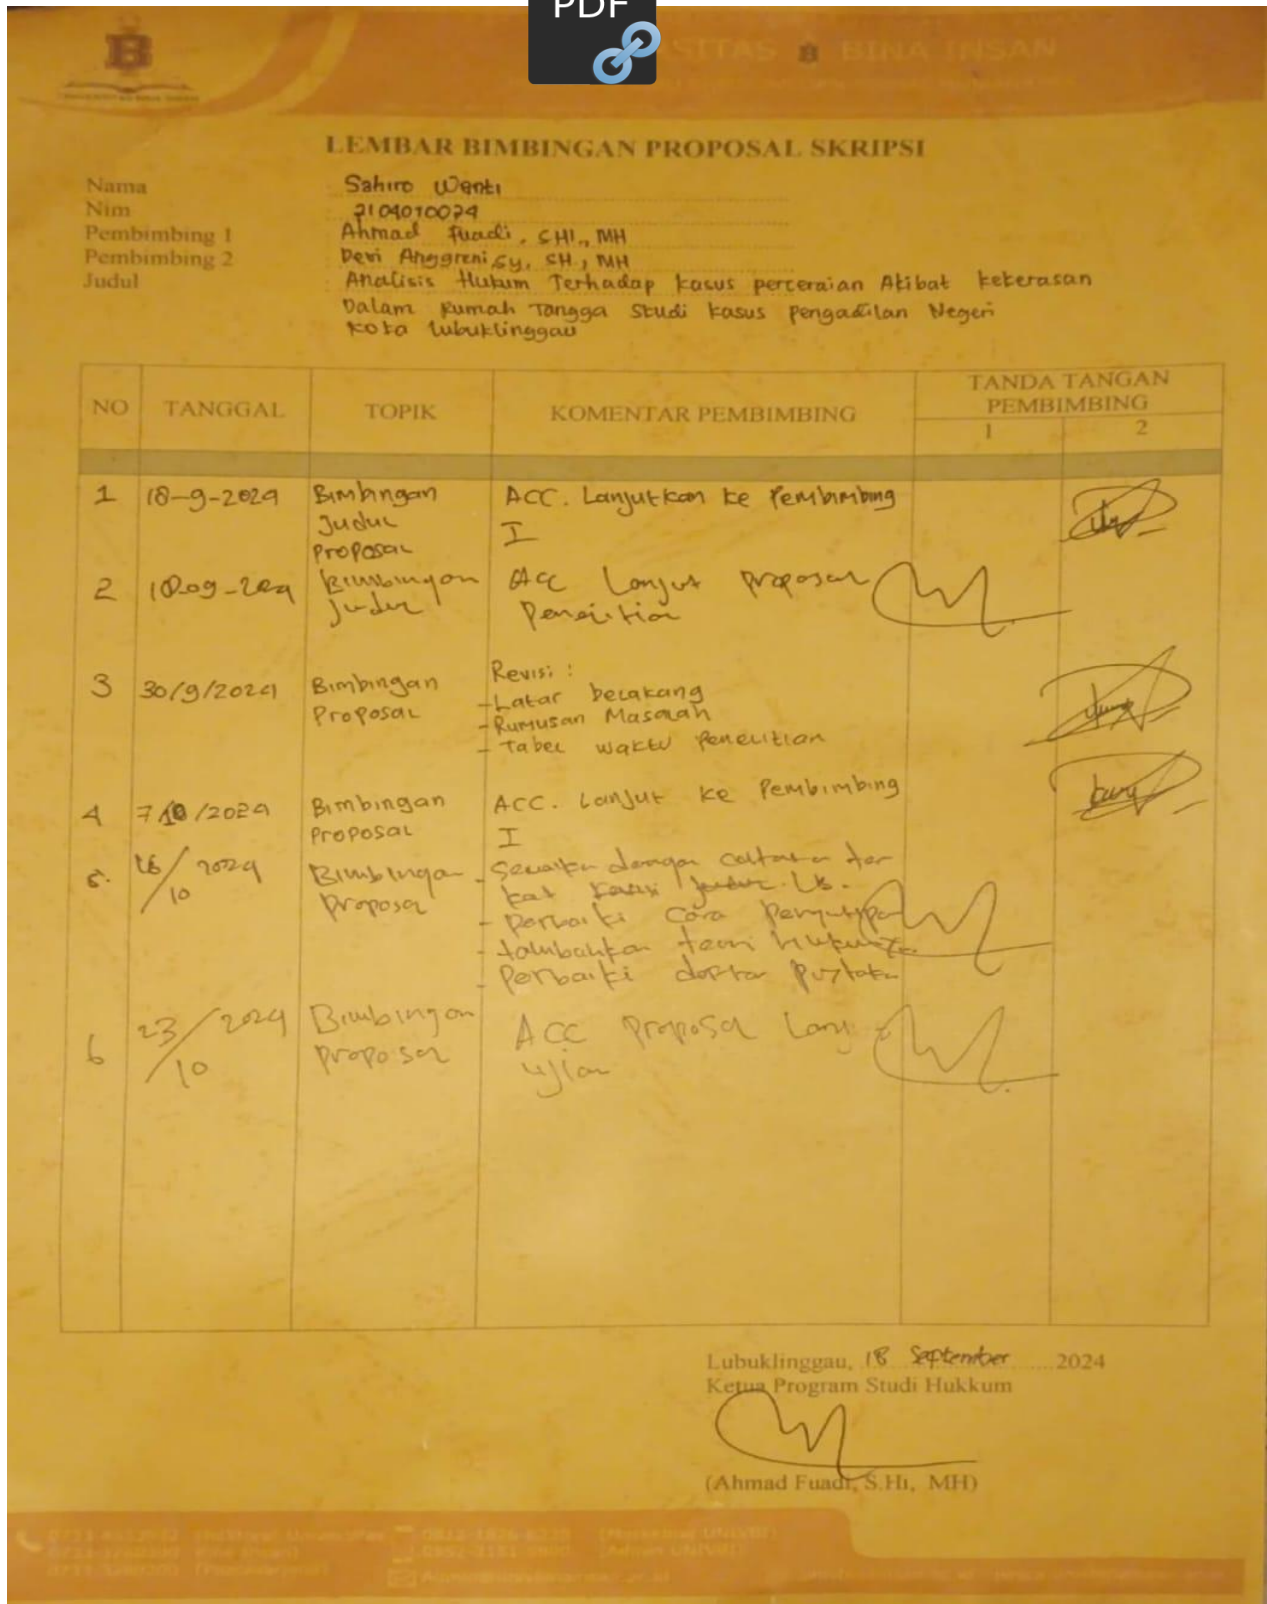 PDF
SITAS B BINA INSAN
B
LEMBAR BIMBINGAN PROPOSAL SKRIPSI
Nama Sahiro Wanti
Nim 2104010024
Pembimbing 1 Ahmad Fuadi, SHI., MH
Pembimbing 2 Devi Anggreni, Sy, SH, MH
Judul : Analisis Hukum Terhadap kasus perceraian Akibat kekerasan
Dalam Rumah Tangga Studi kasus pengadilan Negeri
Kota Lubuklinggau
NO TANGGAL TOPIK KOMENTAR PEMBIMBING TANDA TANGAN PEMBIMBING
1 2
1 18-9-2024 Bimbingan Judul Proposal ACC. Lanjutkan ke Pembimbing I
2 Bimbingan Judul Acc Lanjut proposal Penelitian
3 30/9/2024 Bimbingan Proposal Revisi :
- Latar belakang
- Rumusan Masalah
- Tabel waktu Penelitian
4 7/10/2024 Bimbingan Proposal ACC. Lanjut ke Pembimbing I
5. 16/10 2024 Bimbingan Proposal - dengan
- Perbaiki cara
- tambahkan teori
- Perbaiki daftar Pustaka
6 23/10 2024 Bimbingan Proposal ACC Proposal
ujian
Lubuklinggau, 18 September 2024
Ketua Program Studi Hukkum
(Ahmad Fuadi, S.Hi, MH)